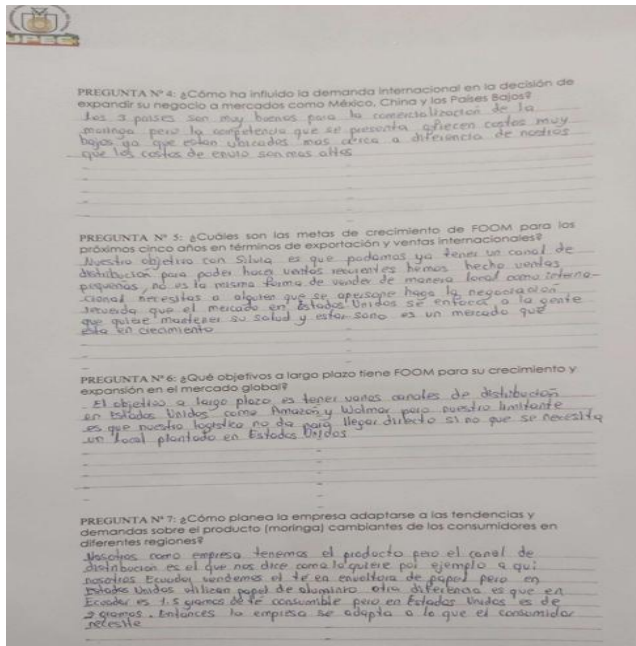 UPEC
PREGUNTA Nº 4: ¿Cómo ha influido la demanda internacional en la decisión de
expandir su negocio a mercados como México, China y los Países Bajos?
los 3 países son muy buenos para la comercialización de la
moringa pero la competencia que se presenta ofrecen costos muy
bajos ya que estan ubicados mas cerca a diferencia de nostros
que los costos de envio son mas altos
PREGUNTA Nº 5: ¿Cuáles son las metas de crecimiento de FOOM para los
próximos cinco años en términos de exportación y ventas internacionales?
Nuestro objetivo con Silvia es que podamos ya tener un canal de
distribución para poder hacer ventas recurentes hemos hecho ventas
pequeñas, no es la misma forma de vender de manera local como interna-
cional necesitas a alguien que se apersone haga la negociación
recuerda que el mercado en Estados Unidos se enfoca a la gente
que quiere mantener su salud y estar sano es un mercado que
esta en crecimiento
PREGUNTA Nº 6: ¿Qué objetivos a largo plazo tiene FOOM para su crecimiento y
expansión en el mercado global?
El objetivo a largo plazo es tener varios canales de distribución
en Estados Unidos como Amazon y Walmar pero nuestro limitante
es que nuestro logistica no da para llegar directo si no que se necesita
un local plantado en Estados Unidos
PREGUNTA Nº 7: ¿Cómo planea la empresa adaptarse a las tendencias y
demandas sobre el producto (moringa) cambiantes de los consumidores en
diferentes regiones?
Nosotros como empresa tenemos el producto pero el canal de
distribucion es el que nos dice como lo quiere por ejemplo a qui
nosotros Ecuador vendemos el té en envoltura de papel pero en
Estados Unidos utilizan papel de aluminio otra diferencia es que en
Ecuador es 1.5 gramos de té consumible pero en Estados Unidos es de
2 gramos. Entonces la empresa se adapta a lo que el consumidor
necesite